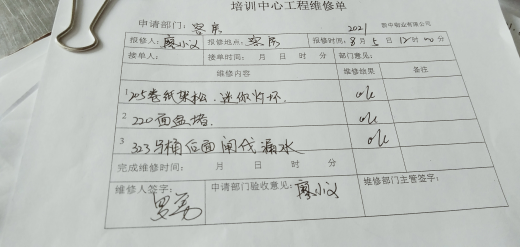 培训中心工程维修单
申请部门：客房 2021
报修人：廖小义 报修地点：客房 报修时间：8月5日12时00分
接单人： 接单时间： 月 日 时 分 部门意见：
维修内容 维修结果 备注
1 205卷纸架松，迷你灯坏． ok
2 220面盆堵． ok
3 323马桶后面阀伐漏水 ok
完成维修时间： 月 日 时 分
维修人签字： 申请部门验收意见：廖小义 维修部门主管签字：